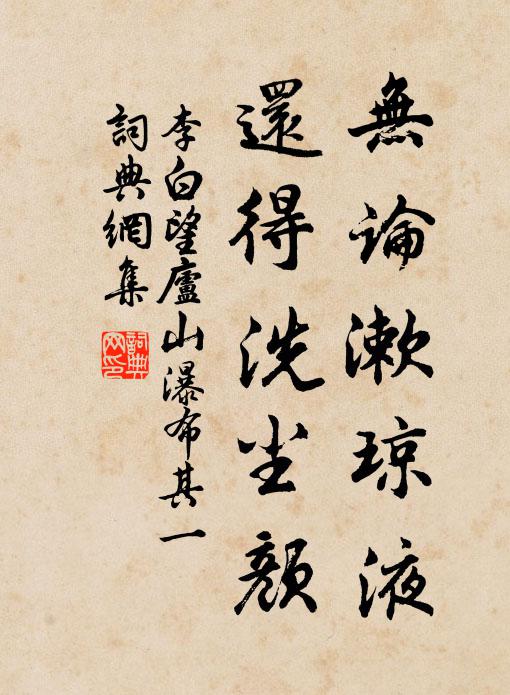 無論漱琼液
還得洗尘顏
李白望廬山瀑布其一
詞典網集
詞典網印